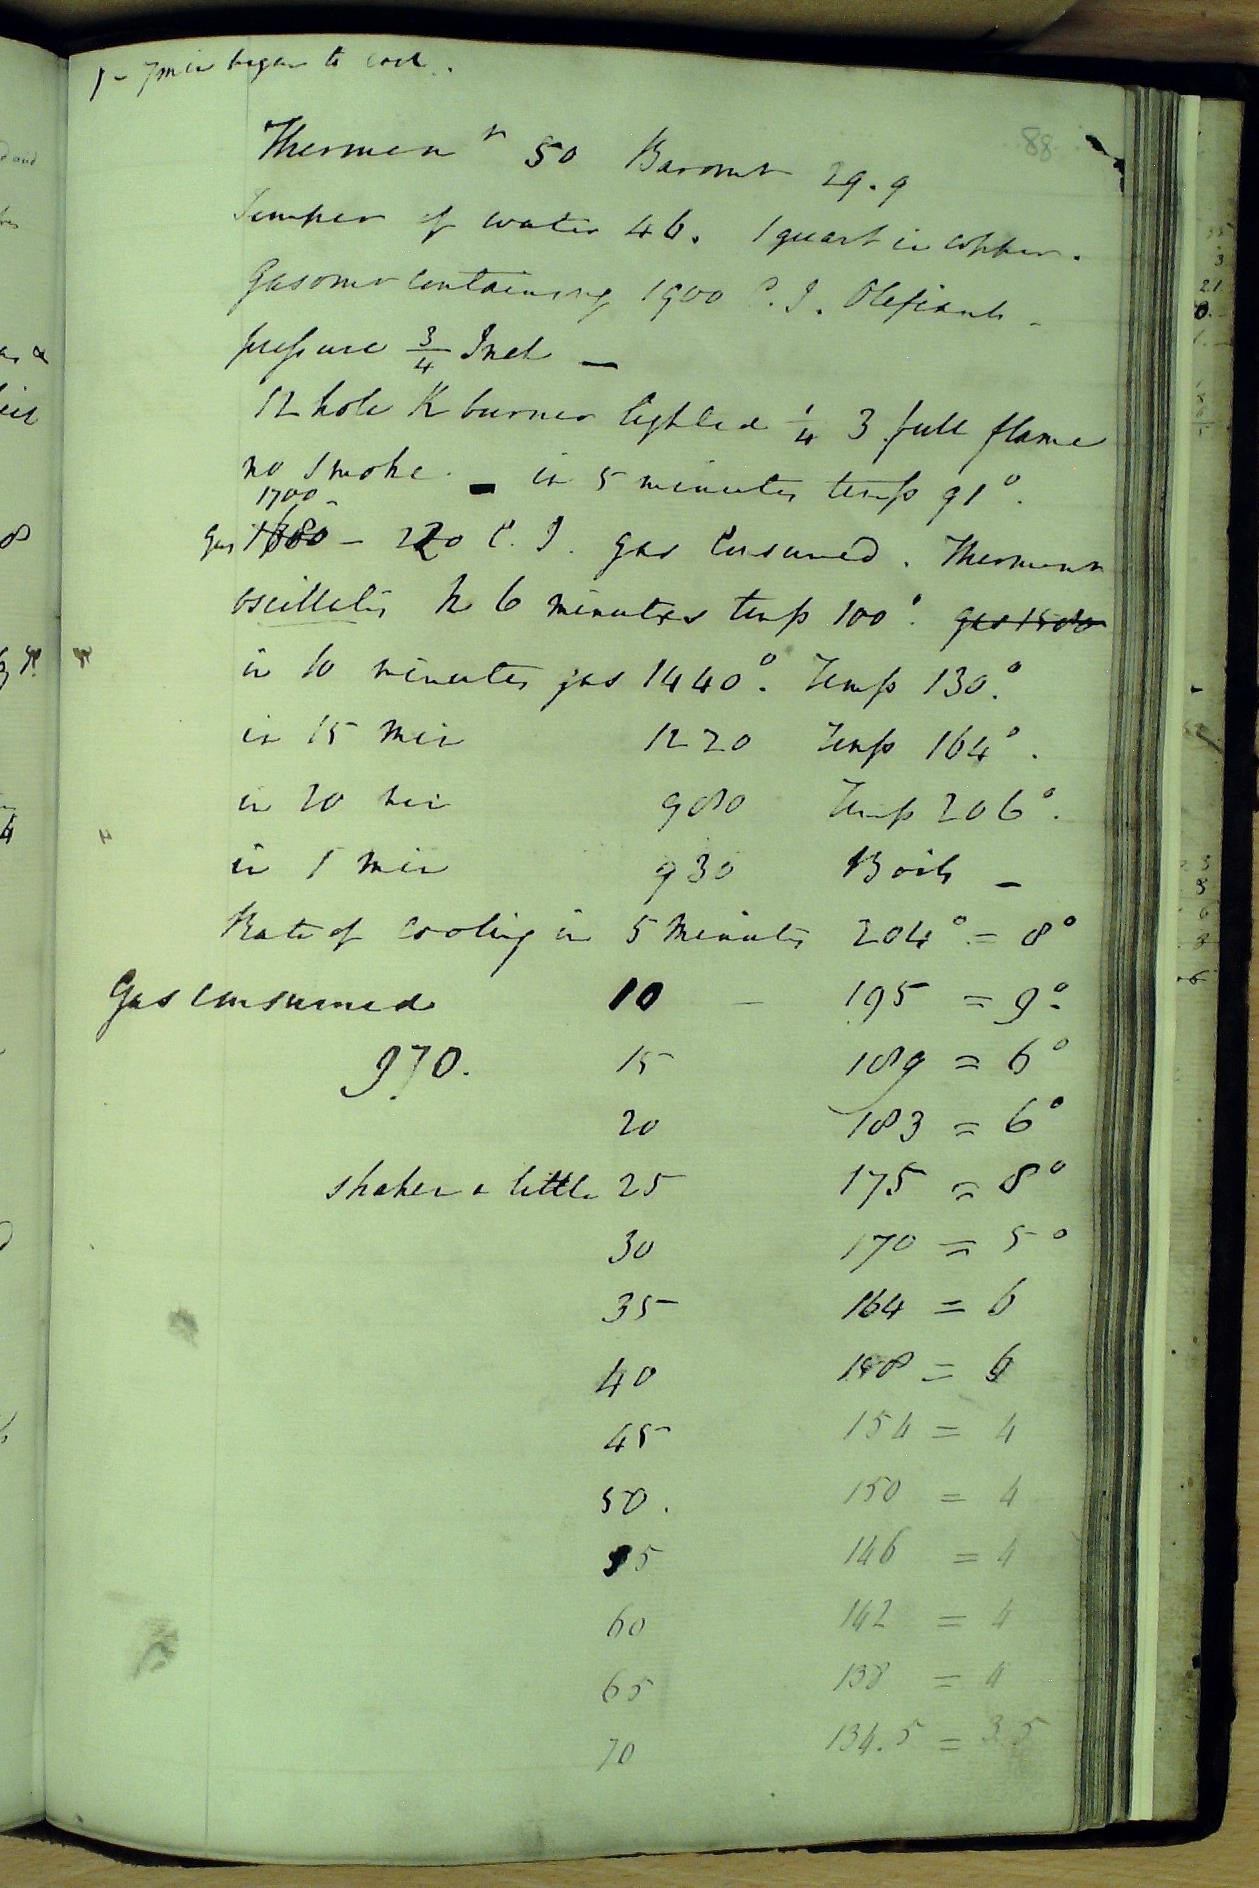 1 - 7 min began to cool.
88
Thermom r 50 Baromr 29.9
Temper of water 46. 1 quart in copper.
Gasomr containing 1900 C.I. Olefiant -
pressure 3/4 Inch —
12 hole K burner lighted 1/4 3 full flame
no smoke. - in 5 minutes temp 91°.
1700 -
gas 1680 - 220 C.I. gas consumed. Thermomr
oscillates 6 minutes temp 100°. gas 1500
in 10 minutes gas 1440°. Temp 130°.
in 15 min 1220 Temp 164°.
in 20 min 980 Temp 206°.
in 1 min 930 Boils -
Rate of cooling in 5 minutes 204° = 8°
Gas consumed 10 - 195 = 9°
970. 15 189 = 6°
20 183 = 6°
shaken a little 25 175 = 8°
30 170 = 5°
35 164 = 6
40 158 = 6
45 154 = 4
50. 150 = 4
55 146 = 4
60 142 = 4
65 138 = 4
70 134.5 = 3.5